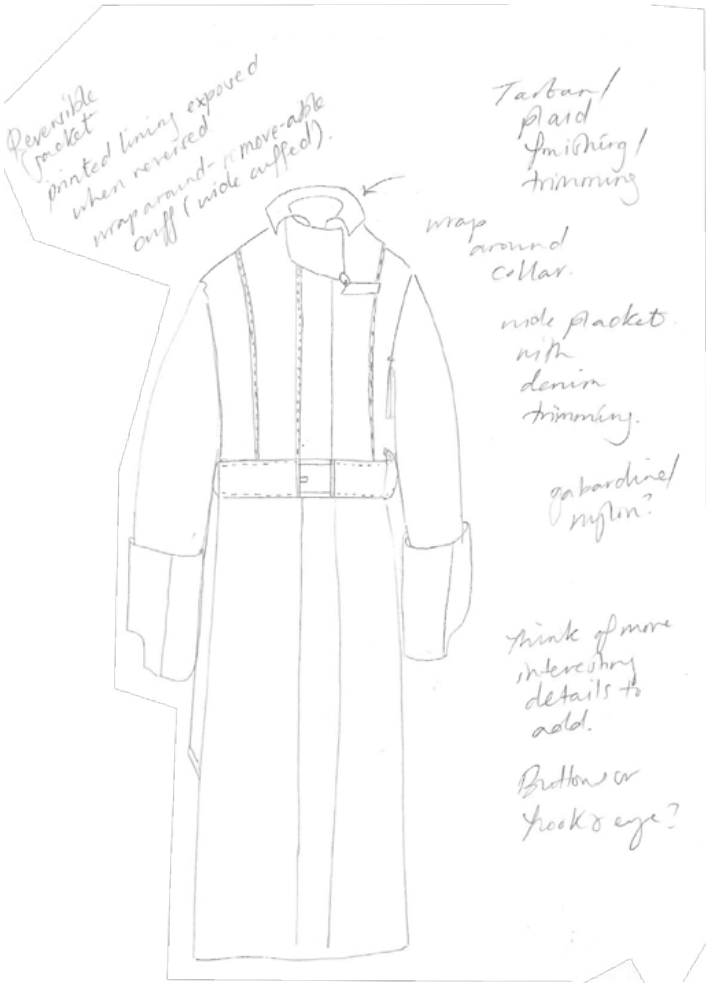 Reversible
jacket
printed lining exposed
when reversed
wrap around- remove-able
cuff (wide cuffed).
Tartan/
plaid
finishing/
trimming
wrap
around
collar.
wide placket
with
denim
trimming.
gabardine/
nylon?
think of more
interesting
details to
add.
Buttons or
hook & eye?